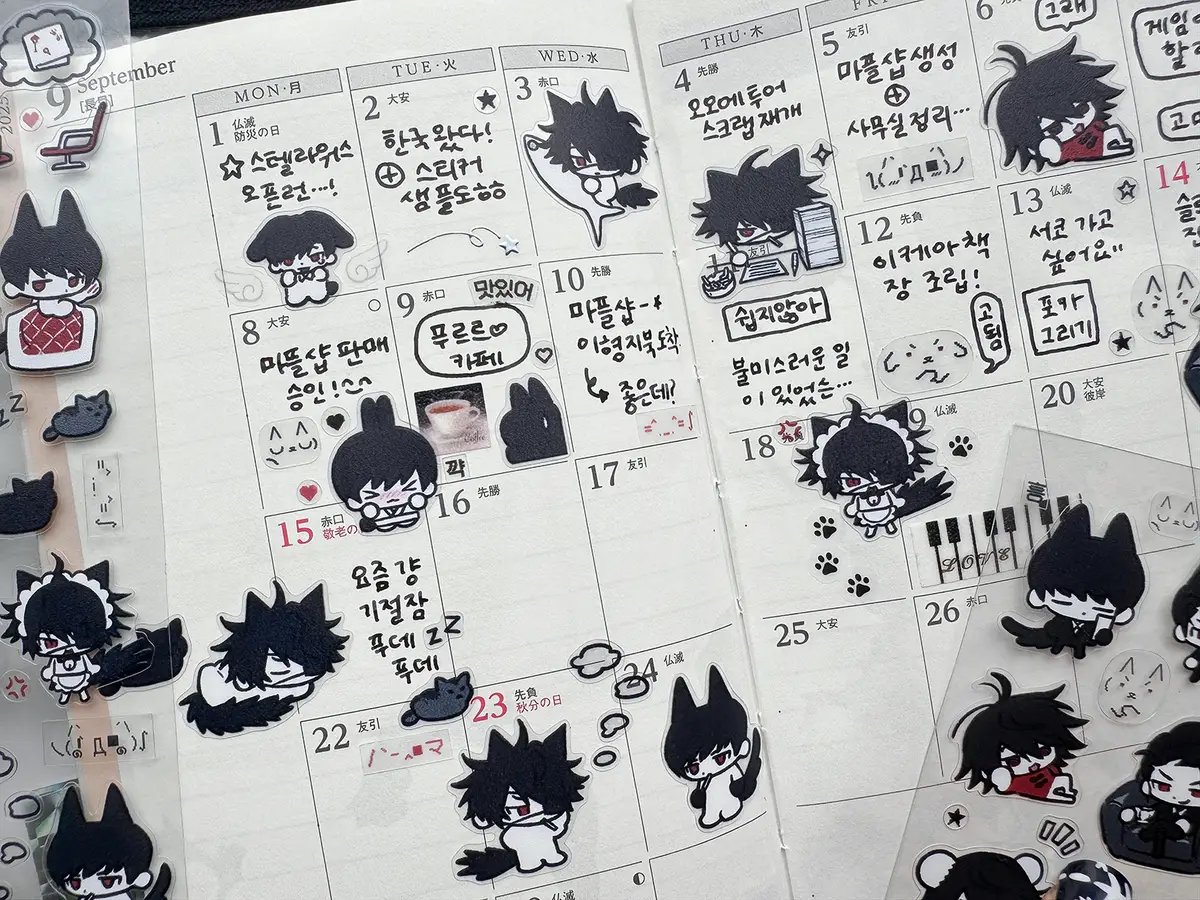 2025
9 September
[長月]
MON·月
TUE·火
WED·水
THU·木
1 仏滅
防災の日
☆ 스텔라워스
오픈런...!
2 大安
한국 왔다!
⊕ 스티커
샘플도ㅎㅎ
3 赤口
4 先勝
오오에 투어
스크랩 재개
5 友引
마플샵 생성
⊕
사무실 정리...
6
그래
8 大安
마플샵 판매
승인!
9 赤口
맛있어
푸르르♡
카페
Coffee
꺅
10 先勝
마플샵-
이형지북 도착
좋은데?
友引
쉽지않아
불미스러운 일
이 있었는...
12 先負
이케아 책
장 조립!
고됨
13 仏滅
서코 가고
싶어요
포카
그리기
14
15 赤口
敬老の
요즘 걍
기절잠
푸데 zZ
푸데
16 先勝
17 友引
18 先負
19 仏滅
LOVE
20 大安
彼岸
22 友引
23 先負
秋分の日
24 仏滅
25 大安
26 赤口
仏滅